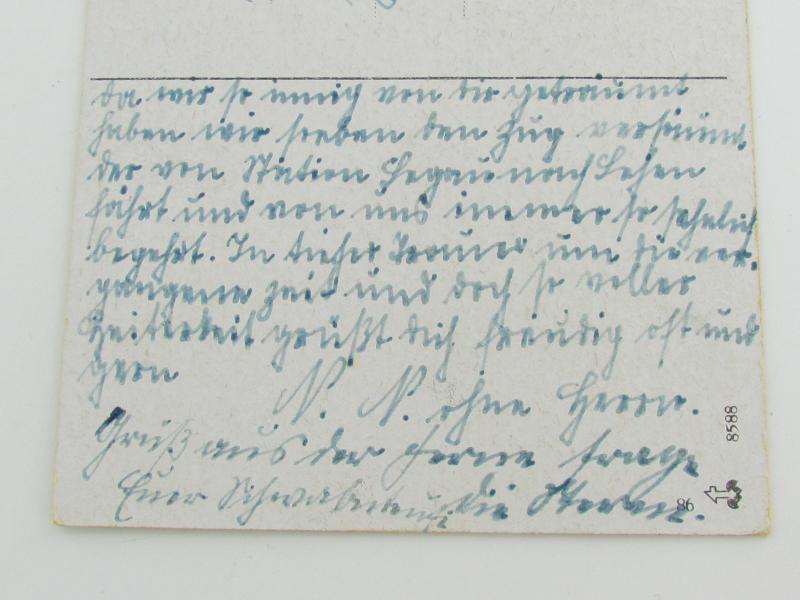 da wir so innig von dir geträumt
haben wir soeben den Zug versäumt
der von Station nach
fährt und von uns immer so sehnlich
begehrt. In tiefer Trauer um die ver-
gangene Zeit und doch so voller
Heiterkeit grüßt dich freudig oft und
gern
N. N. ohne Herrn.
Gruß aus der Ferne
Euer die
8588
86